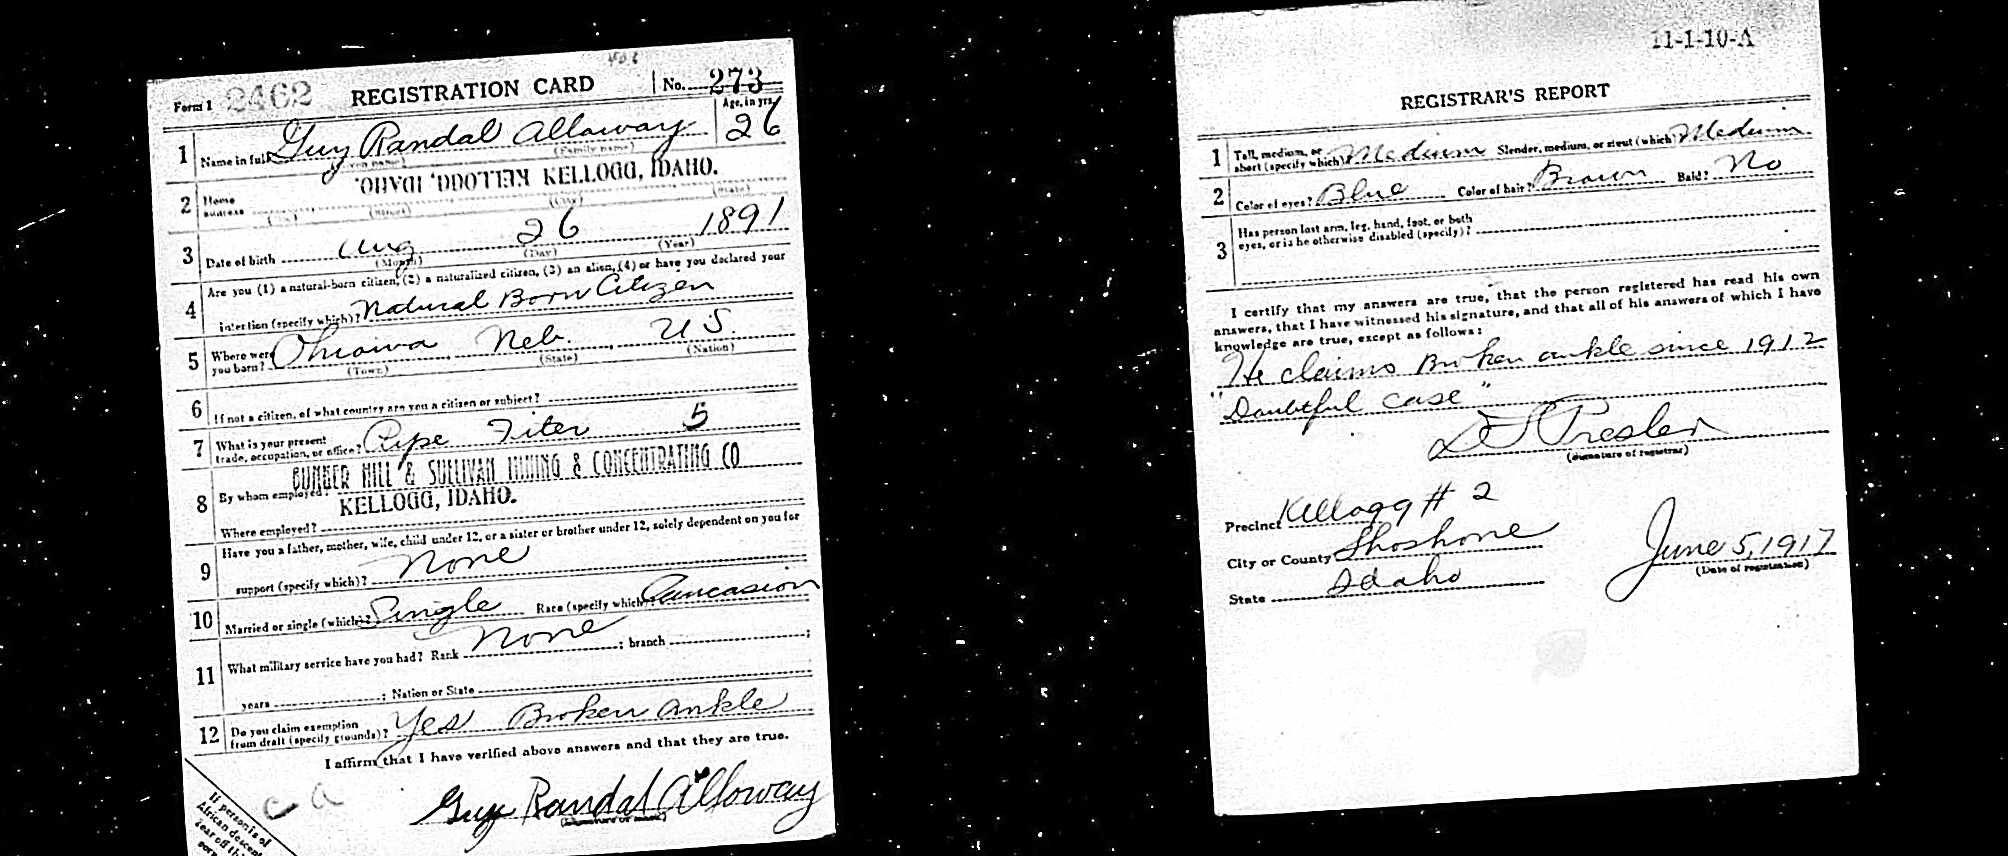 Form 1 2462 REGISTRATION CARD No. 273
Age, in yrs.
1 Name in full Guy Randal Alloway 26
(Given name) (Family name)
KELLOGG, IDAHO. KELLOGG, IDAHO.
2 Home address
(No.) (Street) (City) (State)
3 Date of birth Aug 26 1891
(Month) (Day) (Year)
4 Are you (1) a natural-born citizen, (2) a naturalized citizen, (3) an alien, (4) or have you declared your
intention (specify which)? Natural Born Citizen
5 Where were you born? Ohiowa Neb. U S.
(Town) (State) (Nation)
6 If not a citizen, of what country are you a citizen or subject?
7 What is your present trade, occupation, or office? Pipe Fiter 5
BUNKER HILL & SULLIVAN MINING & CONCENTRATING CO
8 By whom employed?
KELLOGG, IDAHO.
Where employed?
9 Have you a father, mother, wife, child under 12, or a sister or brother under 12, solely dependent on you for
support (specify which)? None
10 Married or single (which)? Single Race (specify which)? Caucasion
11 What military service have you had? Rank None ; branch ;
years ; Nation or State
12 Do you claim exemption from draft (specify grounds)? Yes Broken ankle
I affirm that I have verified above answers and that they are true.
Guy Randal Alloway
If person is of
African descent
tear off this
11-1-10-A
REGISTRAR'S REPORT
1 Tall, medium, or short (specify which)? Medium Slender, medium, or stout (which)? Medium
2 Color of eyes? Blue Color of hair? Brown Bald? No
3 Has person lost arm, leg, hand, foot, or both
eyes, or is he otherwise disabled (specify)?
I certify that my answers are true, that the person registered has read his own
answers, that I have witnessed his signature, and that all of his answers of which I have
knowledge are true, except as follows:
He claims Broken ankle since 1912
"Doubtful case"
(Signature of registrar)
Precinct Kellogg # 2
City or County Shoshone
State Idaho
June 5, 1917
(Date of registration)